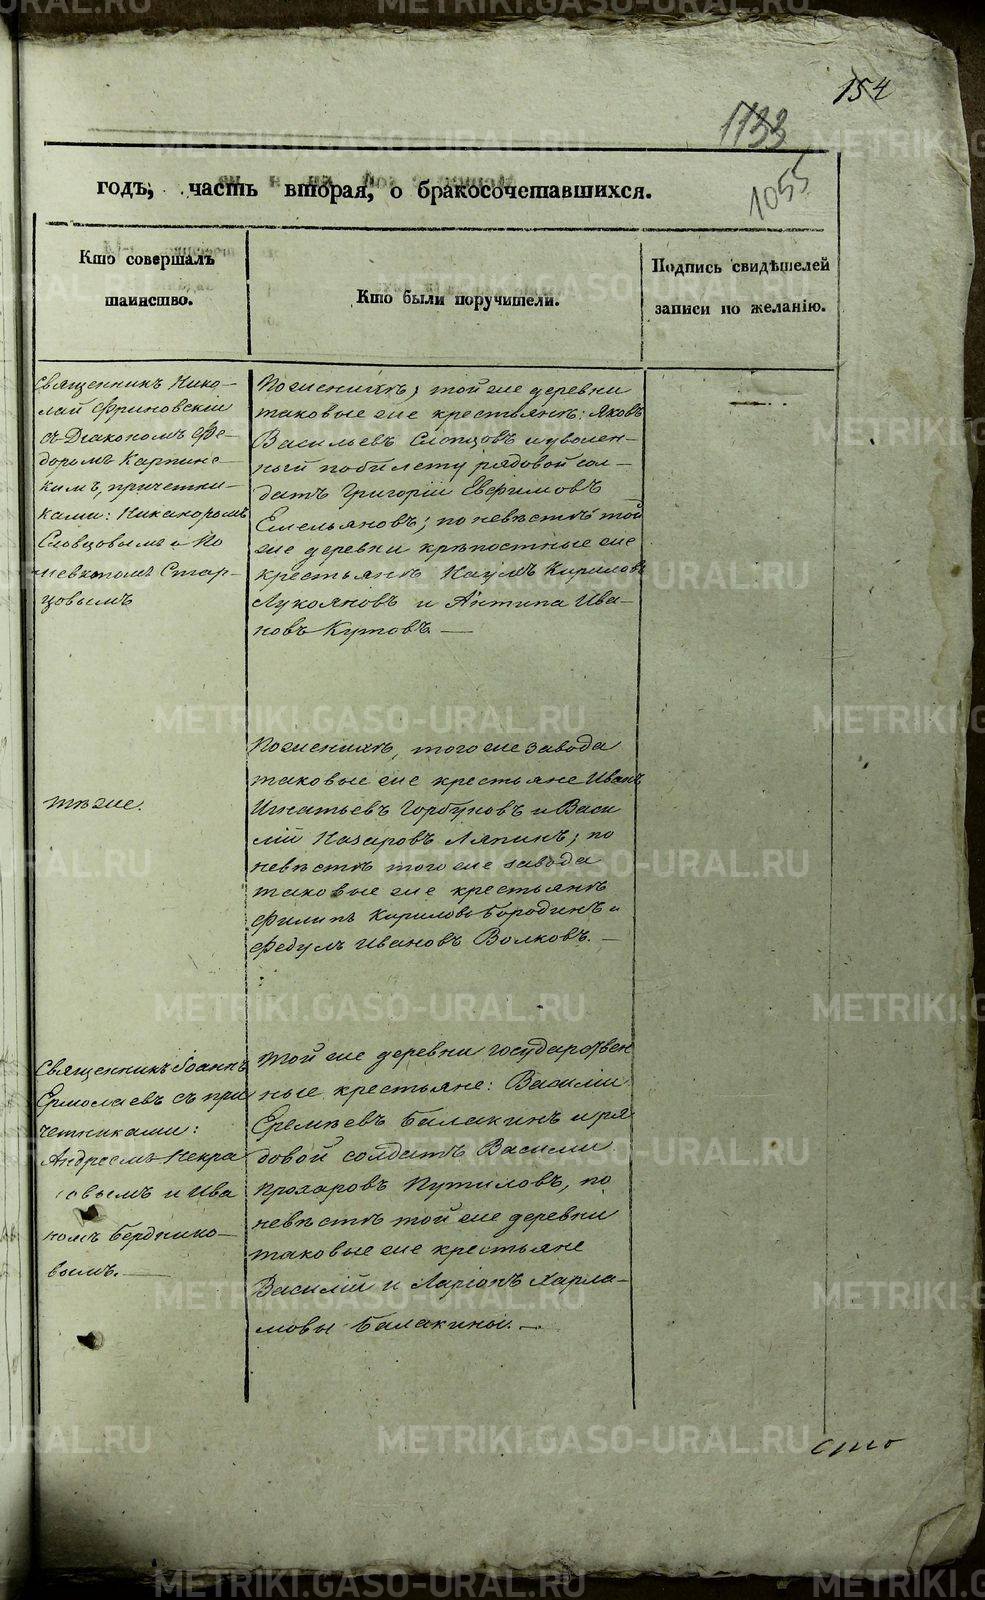 154
1133
1055
годъ, часть вторая, о бракосочетавшихся.
Кто совершалъ
таинство.
Кто были поручители.
Подпись свидѣтелей
записи по желанію.
Священникъ Нико-
лай Фриновскій
съ Діакономъ Фе-
доромъ Карпинс-
кимъ, причетни-
ками: Никаноромъ
Словцовымъ и
Стар-
цовымъ
По женихѣ; той же деревни
таковые же крестьянѣ: Яковъ
Васильевъ Слопцовъ и уволен-
ный по билету рядовой сол-
датъ Григорій Евфимовъ
Емельяновъ; по невѣстѣ той
же деревни крѣпостные же
крестьянѣ Наумъ Кириловъ
Лукояновъ и Антипа Ива-
новъ Куповъ. —
тѣже.
По женихѣ, того же завода
таковые же крестьяне Иванъ
Игнатьевъ Горбуновъ и Васи
лій Назаровъ Ляпинъ; по
невѣстѣ того же завода
таковые же крестьянѣ
Филипъ Кириловъ Бородинъ и
Федулъ Ивановъ Волковъ. —
Священникъ Іоаннъ
Ермолаевъ съ при
четниками:
Андреемъ Некра
совымъ и Ива
номъ Бердnико-
вымъ. —
Той же деревни государствен
ные крестьяне: Василій
Еремѣевъ Балакинъ и ря
довой солдатъ Василій
Прохаровъ Путиловъ, по
невѣстѣ той же деревни
таковые же крестьяне
Василій и Ларіонъ Харла-
мовы Балакины. —
сто
METRIKI.GASO-URAL.RU